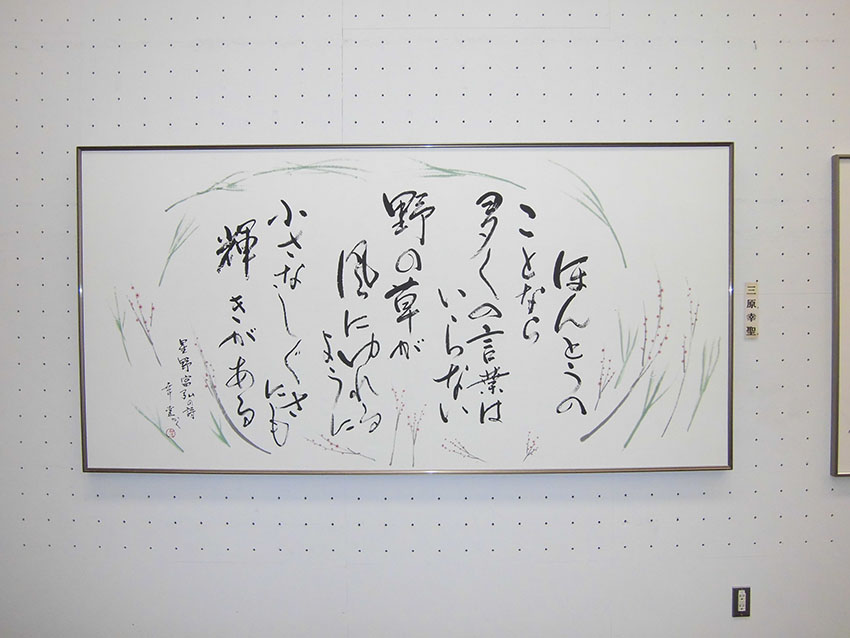 ほんとうの
ことなら
多くの言葉は
いらない
野の草が
風にゆれる
ように
小さなしぐさ
にも
輝きがある
星野富弘の詩
幸聖かく
三原幸聖